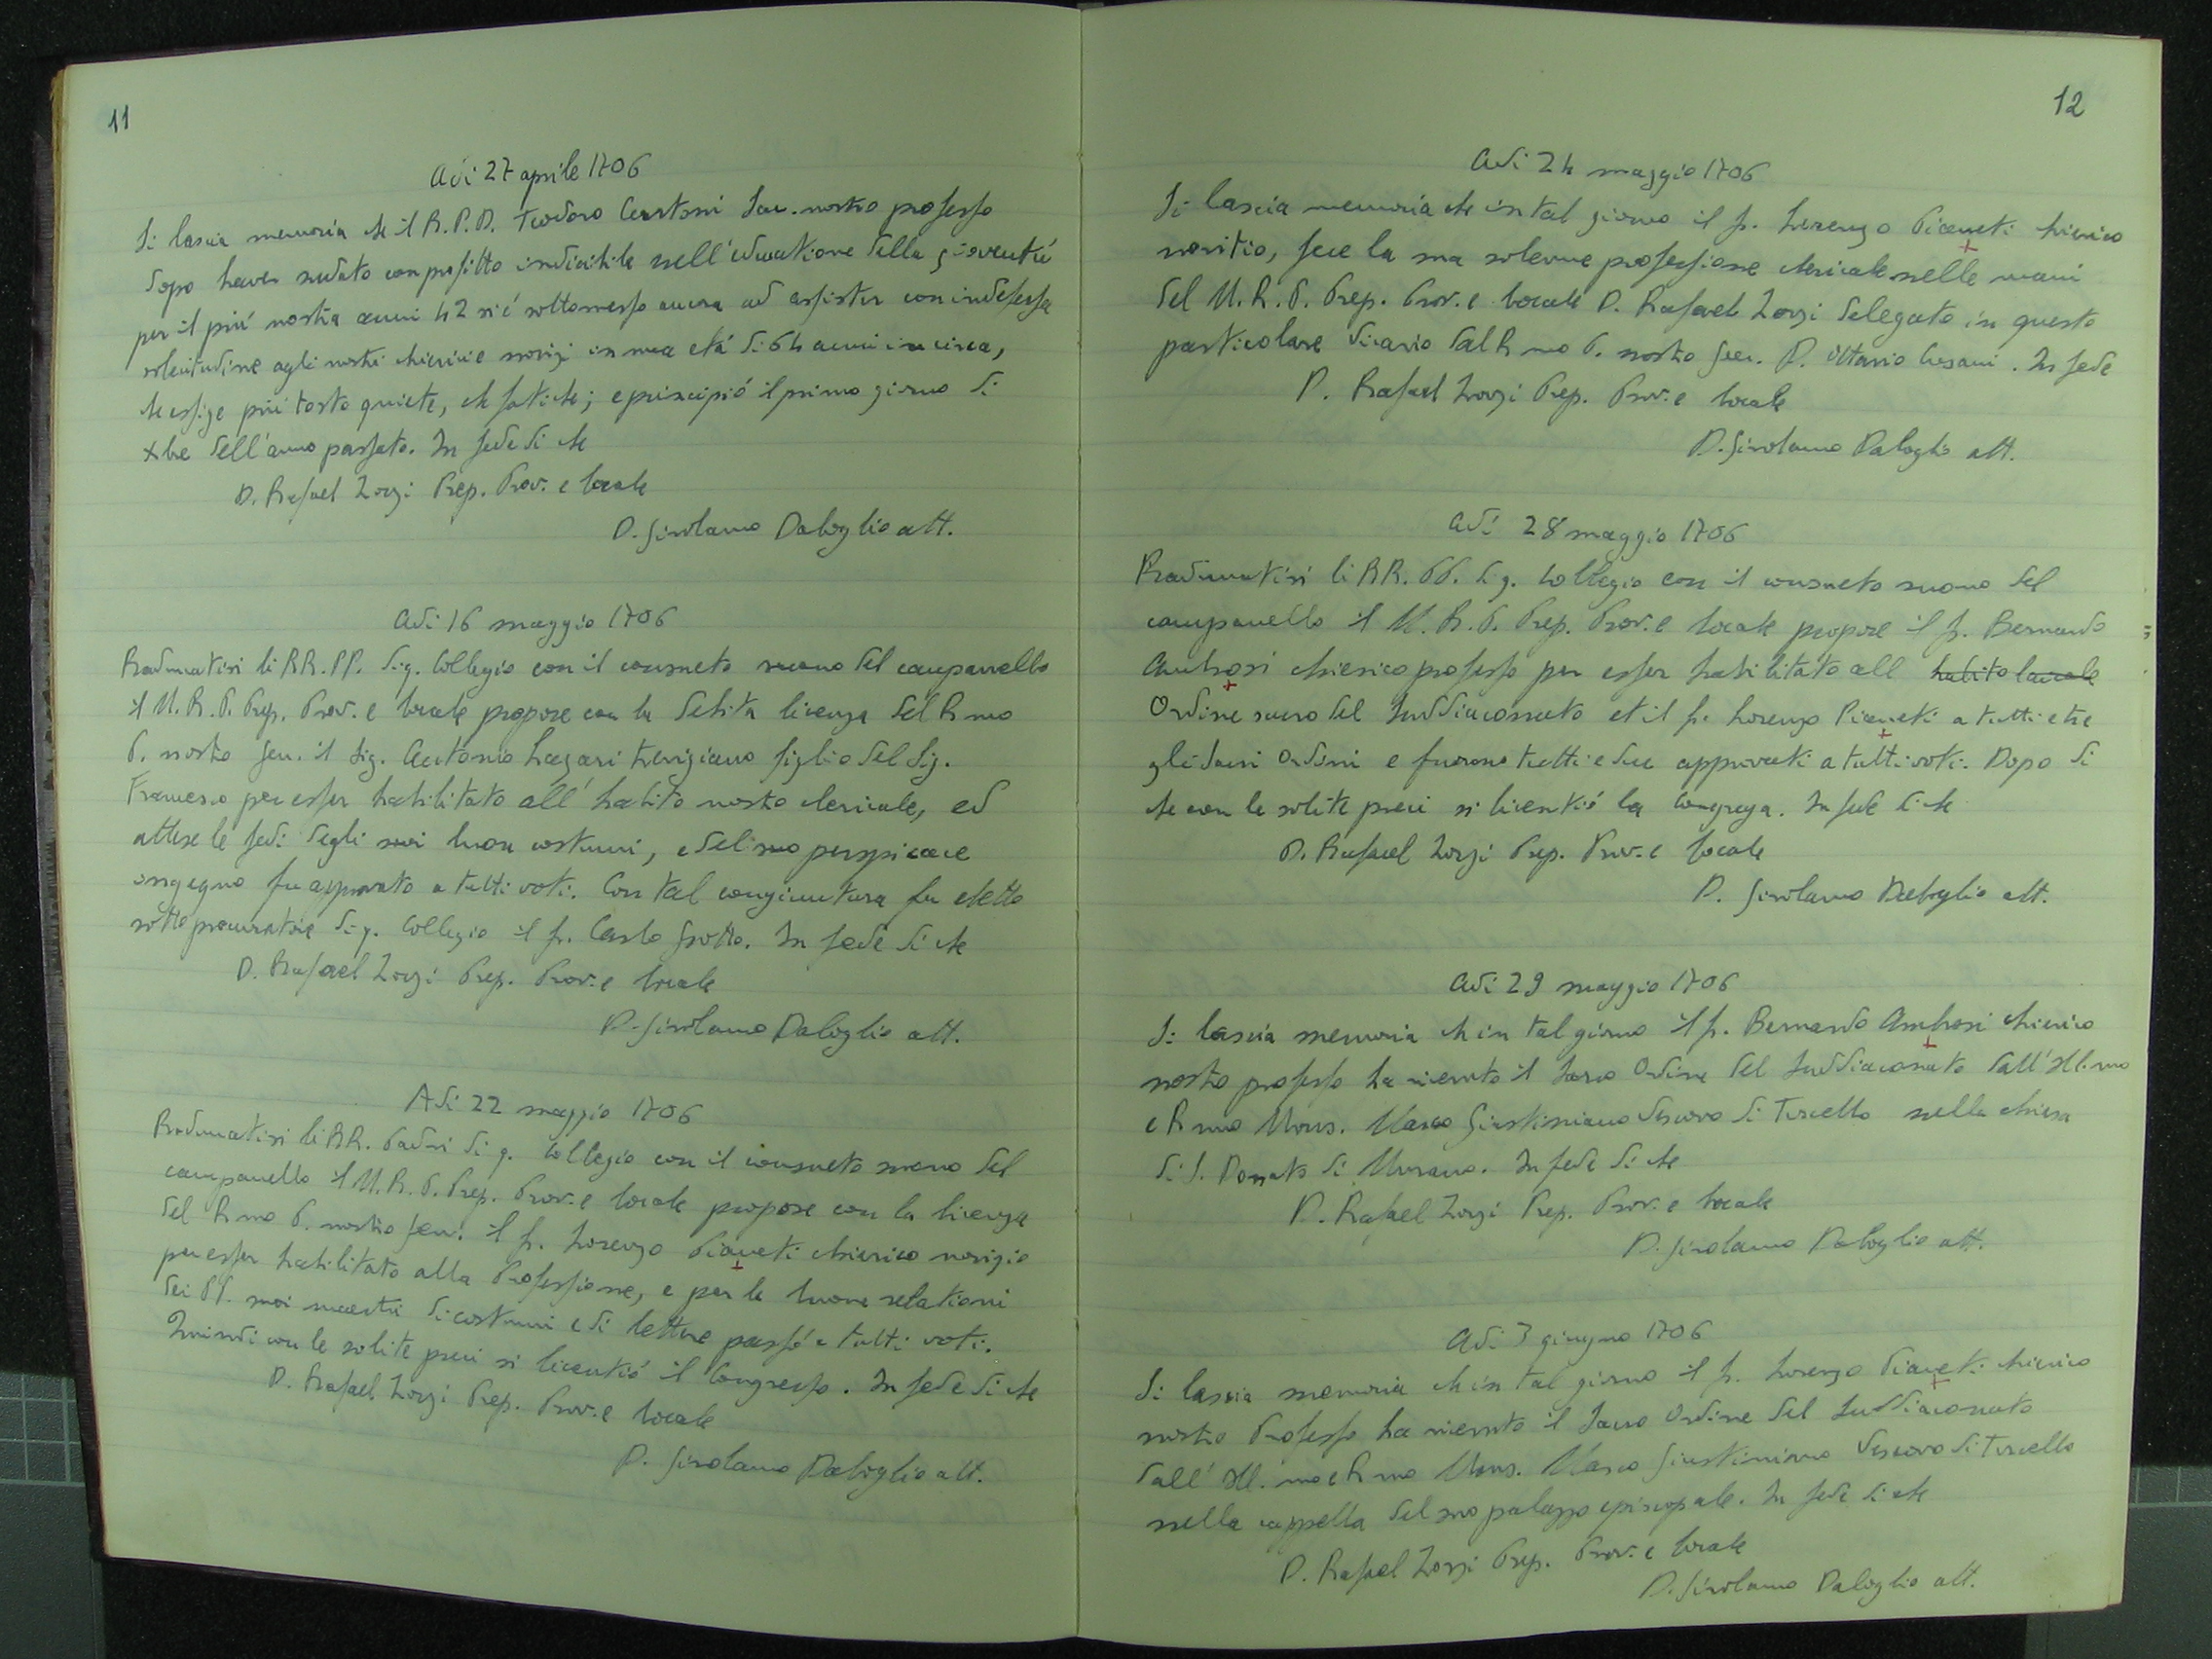 11
Adì 27 aprile 1706
Si lascia memoria che il R.P.D. Teodoro Sac. nostro professo
dopo haver sudato con profitto indicibile nell'educatione della gioventù
per il più nostra anni 42 si è sottomesso ancora ad assister con indefessa
solecitudine agli nostri chierici e novizi in sua età di 64 anni in circa,
che essige più tosto quiete, che fatiche; e principiò il primo giorno di
xbre dell'anno passato. In fede di che
D. Rafael Zorzi Prep. Prov. e locale
D. Girolamo Daboglio att.
Adi 16 maggio 1706
Radunatisi li RR. PP. di q. Collegio con il consueto suono del campanello
il M. R. P. Prep. Prov. e locale propose con la debita licenza del R mo
P. nostro Gen. il Sig. Antonio Lazari trevigiano figlio del Sig.
Francesco per esser habilitato all' habito nostro clericale, ed
attese le fedi degli suoi buon costumi, e del suo perspicace
ingegno fu approvato a tutti voti. Con tal congiuntura fu eletto
sotto procuratore di q. Collegio il p. Carlo Grotto. In fede di che
D. Rafael Zorzi Prep. Prov. e locale
D. Girolamo Daboglio att.
Adi 22 maggio 1706
Radunatisi li RR. Padri di q. Collegio con il consueto suono del
campanello il M. R. P. Prep. Prov. e locale propose con la licenza
del R mo P. nostro Gen. il p. Lorenzo Pianeti chierico novizio
per esser habilitato alla Professione, e per le buone relationi
dei PP. suoi maestri di costumi e di lettere passò a tutti voti.
Quindi con le solite preci si licentiò il Congresso. In fede di che
D. Rafael Zorzi Prep. Prov. e locale
D. Girolamo Daboglio att.
12
Adi 24 maggio 1706
Si lascia memoria che in tal giorno il p. Lorenzo Pianeti chierico
novitio, fece la sua solenne professione clericale nelle mani
del M. R. P. Prep. Prov. e locale D. Rafael Zorzi delegato in questo
particolare vicario dal R mo P. nostro Gen. D. Ottavio Cusani. In fede
D. Rafael Zorzi Prep. Prov. e locale
D. Girolamo Daboglio att.
Adì 28 maggio 1706
Radunatisi li RR. PP. di q. Collegio con il consueto suono del
campanello il M. R. P. Prep. Prov. e locale propose il p. Bernardo
Ambrosi chierico professo per esser habilitato all habito laicale
Ordine sacro del Suddiaconato et il p. Lorenzo Pianeti a tutti e tre
gli sacri Ordini e furono tutti e due approvati a tutti voti. Dopo di
che con le solite preci si licentiò la Congrega. In fede di che
D. Rafael Zorzi Prep. Prov. e locale
D. Girolamo Daboglio att.
Adi 29 maggio 1706
Si lascia memoria ch in tal giorno il p. Bernardo Ambrosi chierico
nostro professo ha ricevuto il Sacro Ordine del Suddiaconato dall'Ill.mo
e R mo Mons. Marco Giustiniano Vescovo di Torcello nella chiesa
di S. Donato di Murano. In fede di che
D. Rafael Zorzi Prep. Prov. e locale
D. Girolamo Daboglio att.
Adi 3 giugno 1706
Si lascia memoria ch in tal giorno il p. Lorenzo Pianeti chierico
nostro Professo ha ricevuto il Sacro Ordine del Suddiaconato
dall' Ill. mo e R mo Mons. Marco Giustiniano Vescovo di Torcello
nella cappella del suo palazzo episcopale. In fede di che
D. Rafael Zorzi Prep. Prov. e locale
D. Girolamo Daboglio att.